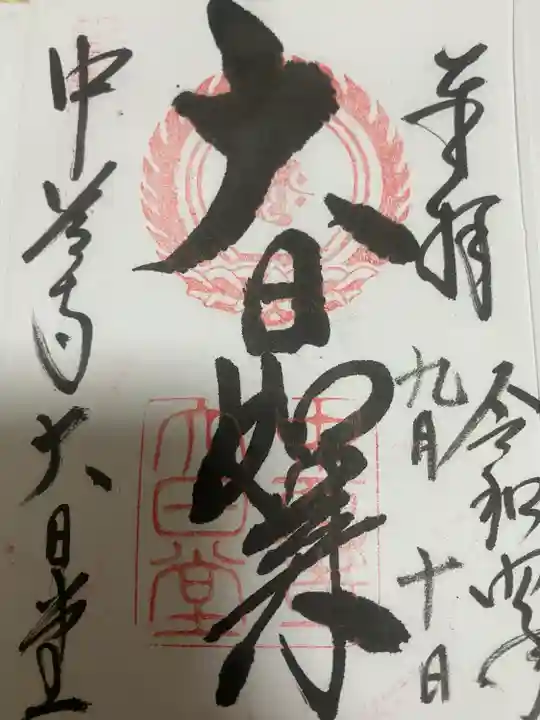 奉拝
令和
九月十日
大日如来
中尊寺大日堂
中尊寺
大日堂